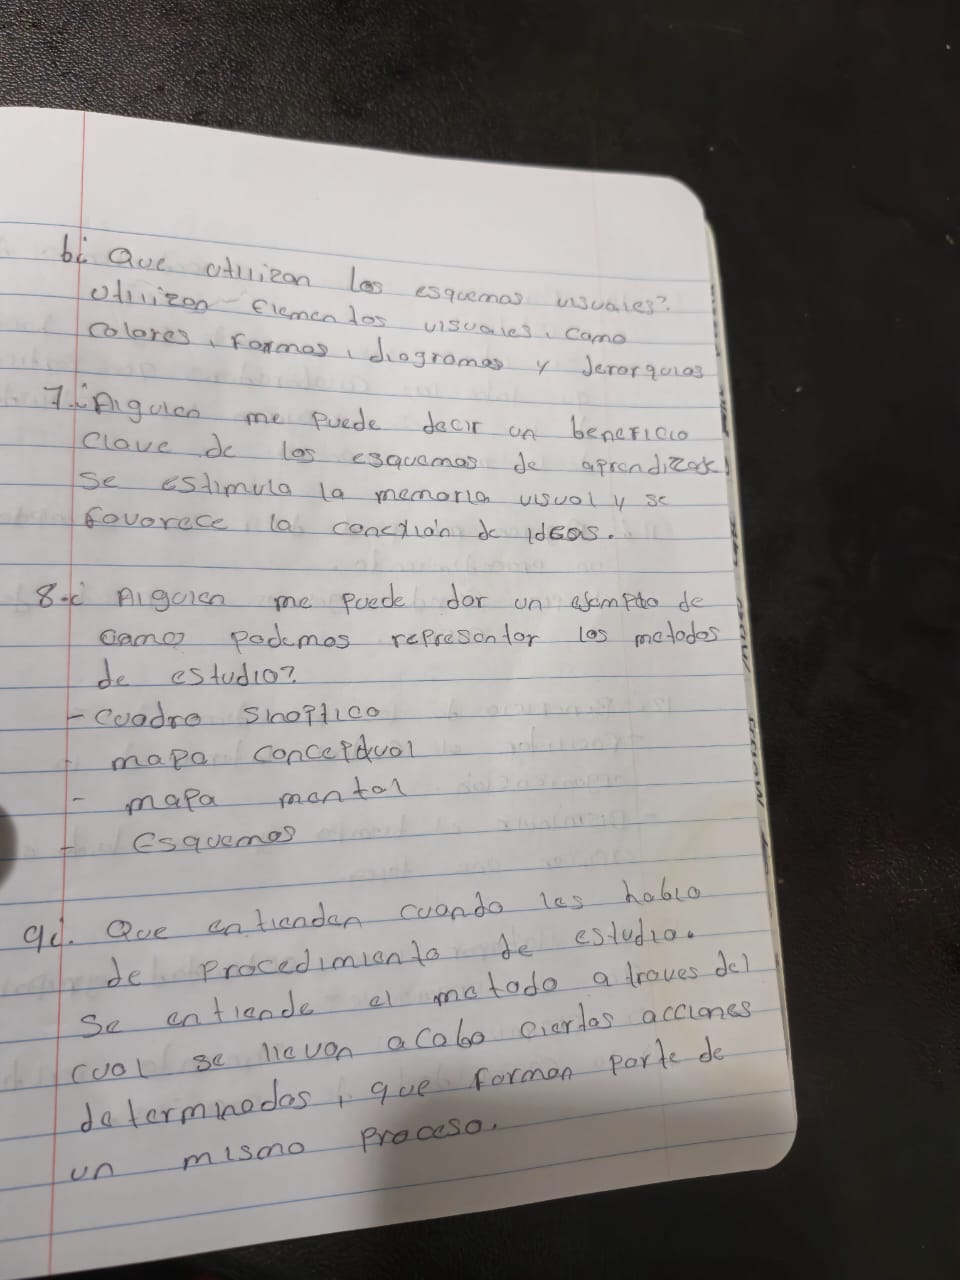 6¿ Que utilizan los esquemas visuales?
Utilizan Elementos visuales, como
colores, formas, diagramas y Jerarquias
7.¿Alguien me puede decir un beneficio
clave de los esquemas de aprendizaje
Se estimula la memoria visual y se
favorece la conexión de ideas.
8-¿ Alguien me puede dar un ejemplo de
como podemos representar los metodos
de estudio?
- cuadro sinoptico
- mapa conceptual
- mapa mental
- Esquemas
9¿. Que entienden cuando les hablo
de procedimiento de estudio.
Se entiende el metodo a traves del
cual se llevan acabo ciertas acciones
determinadas, que forman parte de
un mismo proceso.